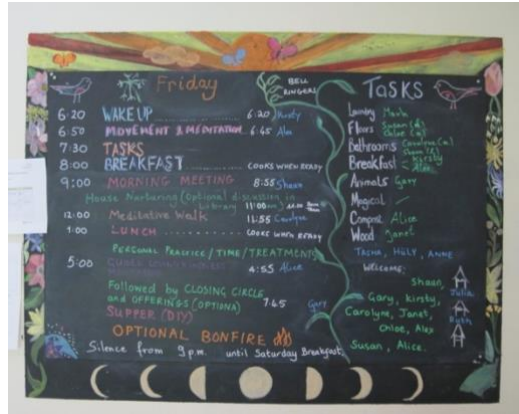 Friday
BELL RINGERS!
6:20 WAKE UP 6:20 Kirsty
6:50 MOVEMENT & MEDITATION 6:45 Alex
7:30 TASKS
8:00 BREAKFAST COOKS WHEN READY
9:00 MORNING MEETING 8:55 Shaun
House Nurturing (Optional discussion in
library 11:00am)
12:00 Meditative Walk 11:55 Carolyne
1:00 LUNCH COOKS WHEN READY
PERSONAL PRACTICE / TIME / TREATMENTS
5:00 4:55 Alice
Followed by CLOSING CIRCLE
and OFFERINGS (OPTIONAL) 7.45 Gary
SUPPER (DIY)
OPTIONAL BONFIRE
Silence from 9pm until Saturday Breakfast.
TASKS
Laundry
Floors
Chloe
Bathrooms
Breakfast Kirsty
Alex
Animals Gary
Magical
Compost Alice
Wood Janet
TASHA, HOLLY, ANNE
Welcome:
Shaun,
Gary, Kirsty,
Carolyne, Janet,
Chloe, Alex
Susan, Alice.
Julia
Ruth